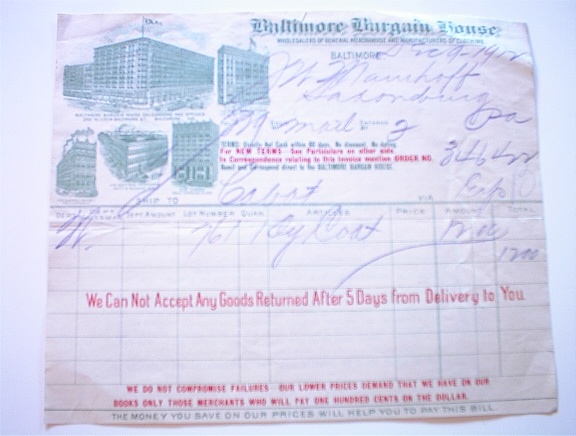 Baltimore Bargain House
WHOLESALERS OF GENERAL MERCHANDISE AND MANUFACTURERS OF CLOTHING
BALTIMORE Dec 9 190
Saxonburg
Pa
mail 2
TERMS: Strictly Net Cash within 30 days, No discount, No dating
For NEW TERMS See Particulars on other side.
In Correspondence relating to this Invoice mention ORDER NO.
Remit and Correspond direct to the BALTIMORE BARGAIN HOUSE.
SHIP TO Cabot VIA Exp
DEPT. AMOUNT LOT NUMBER QUAN. ARTICLES PRICE AMOUNT TOTAL
761 Coat 1200
1200
We Can Not Accept Any Goods Returned After 5 Days from Delivery to You
WE DO NOT COMPROMISE FAILURES OUR LOWER PRICES DEMAND THAT WE HAVE ON OUR
BOOKS ONLY THOSE MERCHANTS WHO WILL PAY ONE HUNDRED CENTS ON THE DOLLAR.
THE MONEY YOU SAVE ON OUR PRICES WILL HELP YOU TO PAY THIS BILL